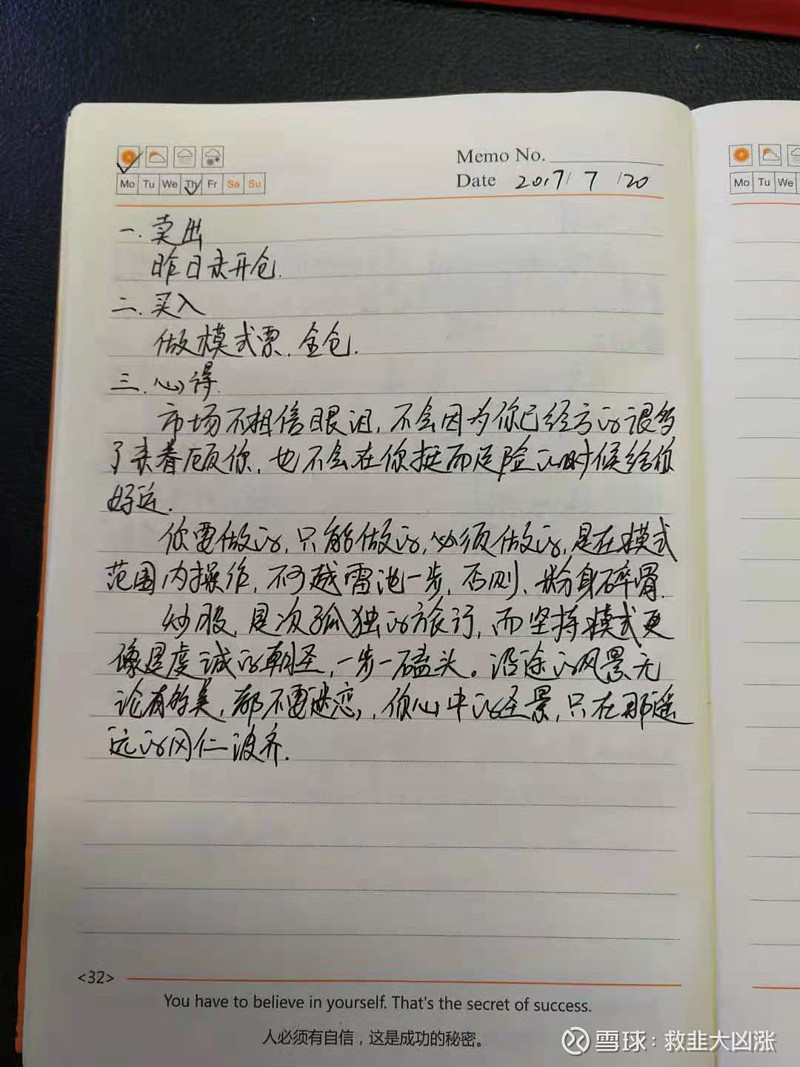 Memo No.
Mo Tu We Th Fr Sa Su
Date 2017/7/20
Mo Tu We
一.卖出
昨日未开仓.
二.买入
做模式票.全仓.
三.心得.
市场不相信眼泪,不会因为你已经亏的很多
了来眷顾你,也不会在你铤而走险的时候给你
好运.
你要做的,只能做的,必须做的,是在模式
范围内操作,不可越雷池一步,否则、粉身碎骨.
炒股,是次孤独的旅行,而坚持模式更
像是虔诚的朝圣,一步一磕头。沿途的风景无
论有的美,都不要迷恋,你心中的圣景,只在那遥
远的冈仁波齐.
<32>
You have to believe in yourself. That's the secret of success.
人必须有自信，这是成功的秘密。
雪球：救韭大凶涨